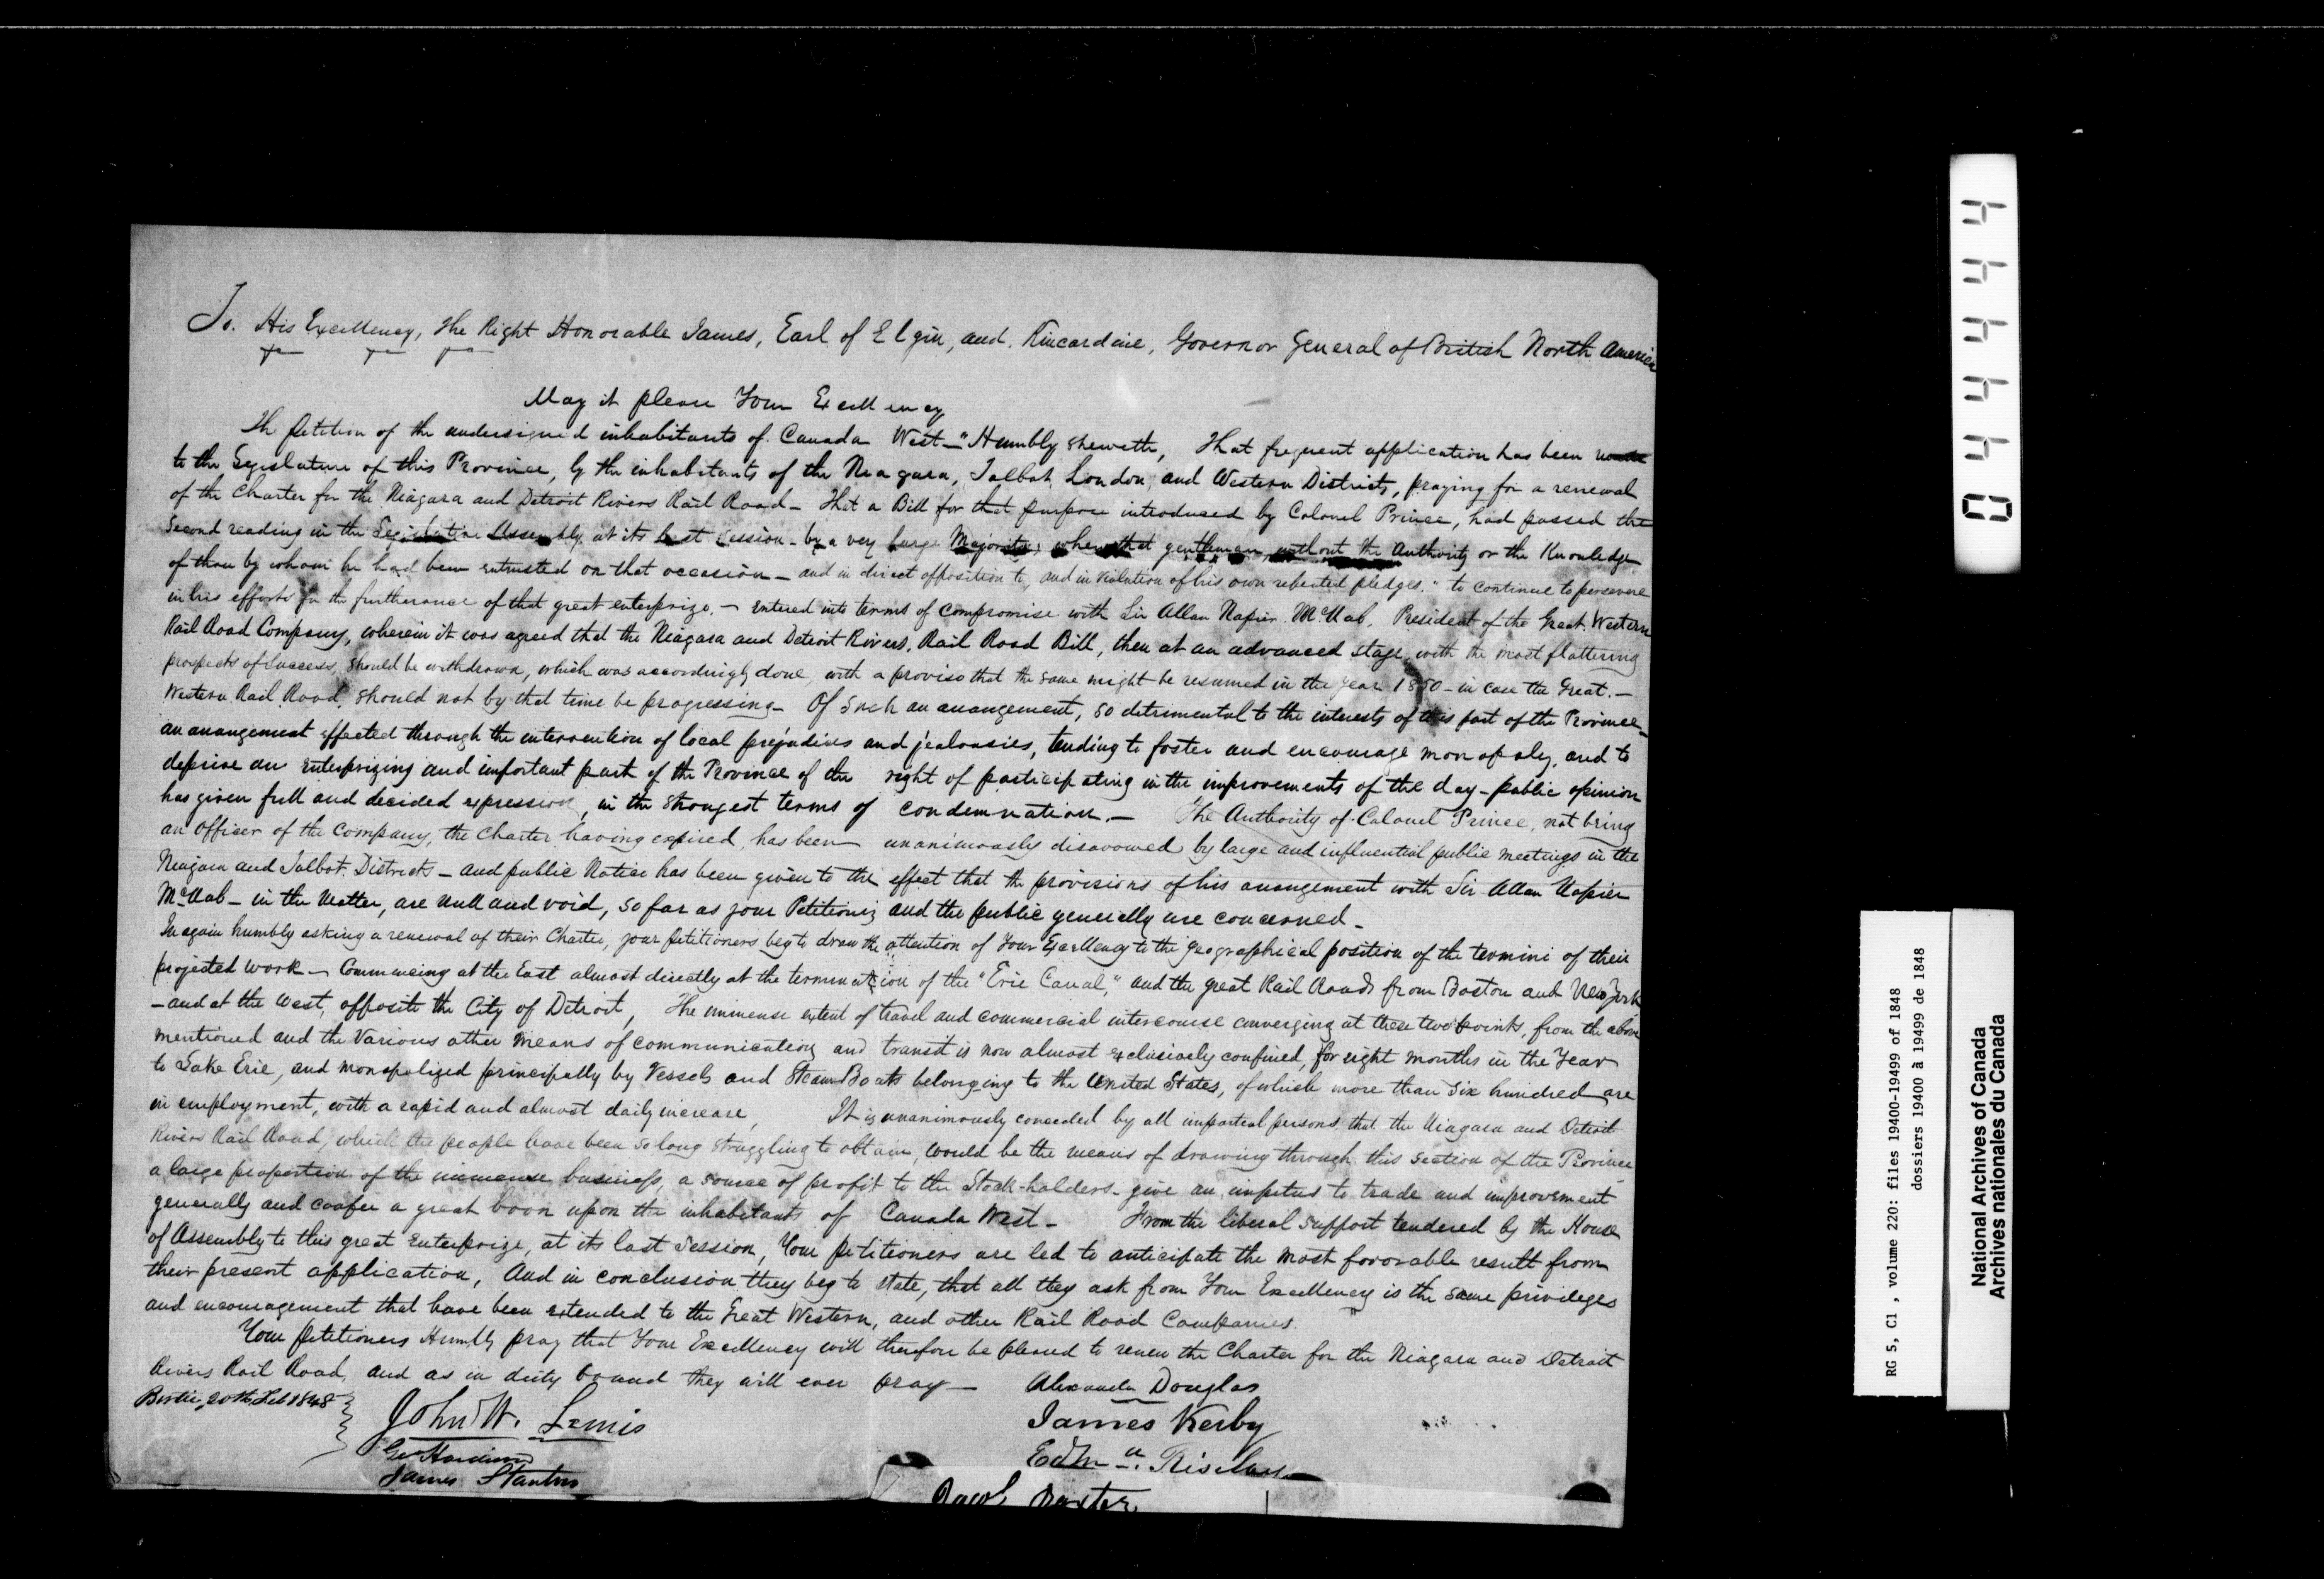 To. His Excellency, The Right Honorable James, Earl of Elgin, and Kincardine, Governor General of British North America
May it please Your Excellency
The Petition of the undersigned inhabitants of Canada West—"Humbly sheweth, That frequent application has been made
to the Legislature of this Province, by the inhabitants of the Niagara, Talbot, London, and Western Districts, praying for a renewal
of the Charter for the Niagara and Detroit Rivers Rail Road— That a Bill for that purpose introduced by Colonel Prince, had passed the
Second reading in the Legislative Assembly, at its last Session— by a very large Majority; when that gentleman, without the Authority or the Knowledge
of those by whom he had been entrusted on that occasion— and in direct opposition to, and in violation of his own repeated pledges. "to continue to persevere
in his efforts for the furtherance of that great enterprize.— entered into terms of compromise with Sir Allan Napier McNab, President of the Great Western
Rail Road Company, wherein it was agreed that the Niagara and Detroit Rivers, Rail Road Bill, then at an advanced stage, with the most flattering
prospects of Success, should be withdrawn, which was accordingly done, with a proviso that the same might be resumed in the year 1850— in case the Great.—
Western Rail Road, should not by that time be progressing— Of such an arrangement, so detrimental to the interests of this part of the Province—
an arrangement effected through the intervention of local prejudices and jealousies, tending to foster and encourage monopoly, and to
deprive an enterprizing and important part of the Province of the right of participating in the improvements of the day— public opinion
has given full and decided expression, in the strongest terms of condemnation.— The Authority of Colonel Prince, not being
an Officer of the Company, the Charter having expired, has been unanimously disavowed by large and influential public meetings in the
Niagara and Talbot Districts— and public Notice has been given to the effect that the provisions of his arrangement with Sir Allan Napier
McNab— in the Matter, are null and void, so far as your Petitioners and the public generally are concerned—
In again humbly asking a renewal of their Charter, your petitioners beg to draw the attention of Your Excellency to the geographical position of the termini of their
projected work— Commencing at the East almost directly at the termination of the "Erie Canal," and the great Rail Roads from Boston and New York
—and at the West, opposite the City of Detroit, The immense extent of travel and commercial intercourse converging at these two points, from the above
mentioned and the Various other means of communication and transit is now almost exclusively confined, for eight months in the Year
to Lake Erie, and monopolized principally by Vessels and Steam Boats belonging to the United States, of which more than Six hundred are
in employment, with a rapid and almost daily increase, It is unanimously conceded by all impartial persons that the Niagara and Detroit
Rivers Rail Road, which the people have been so long struggling to obtain, would be the means of drawing through this section of the Province
a large proportion of the immense business, a source of profit to the Stock-holders— give an impetus to trade and improvement
generally and confer a great boon upon the inhabitants of Canada West— From the liberal support tendered by the House
of Assembly to this great enterprize, at its last Session, Your petitioners are led to anticipate the most favorable result from
their present application, And in conclusion they beg to state, that all they ask from Your Excellency is the same privileges
and encouragement that have been extended to the Great Western, and other Rail Road Companies.
Your Petitioners Humbly pray that Your Excellency will therefore be pleased to renew the Charter for the Niagara and Detroit
Rivers Rail Road, and as in duty bound they will ever pray—
Bertie, 20th Feb 1848
John W. Lewis
Geo Hardison
James Stanton
Alexander Douglas
James Kerby
Edm
Jacob Baxter
04444
RG 5, C1 , volume 220: files 19400-19499 of 1848
dossiers 19400 à 19499 de 1848
National Archives of Canada
Archives nationales du Canada